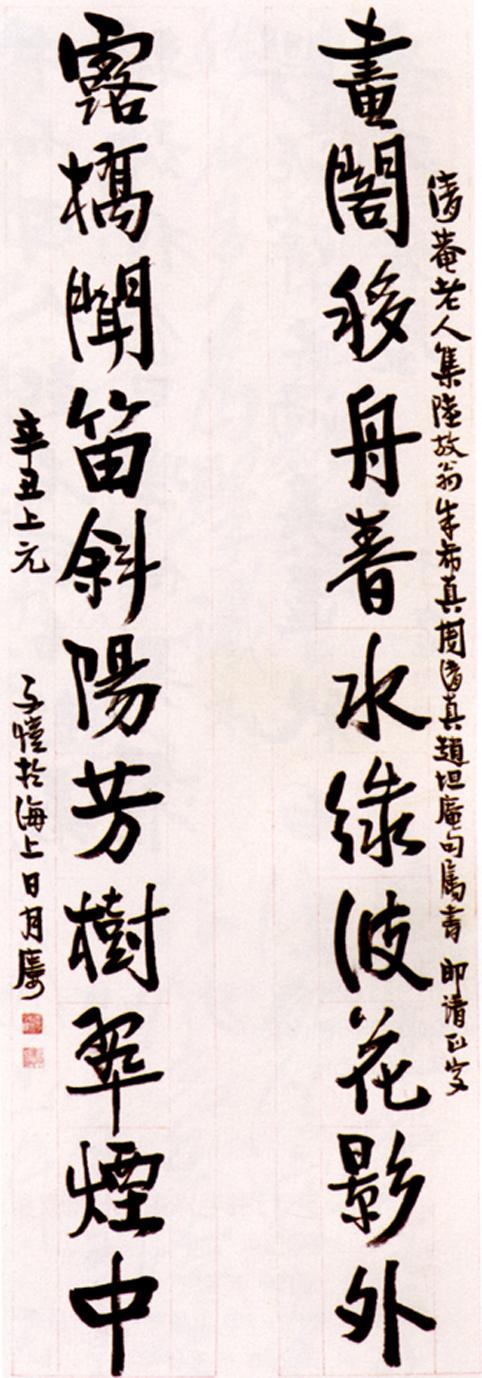 倩菴老人集陸放翁朱希真周清真趙坦庵句屬書 即請正字
畫閣移舟春水綠波花影外
露橋聞笛斜陽芳樹翠煙中
辛丑上元 子愷於海上日月樓